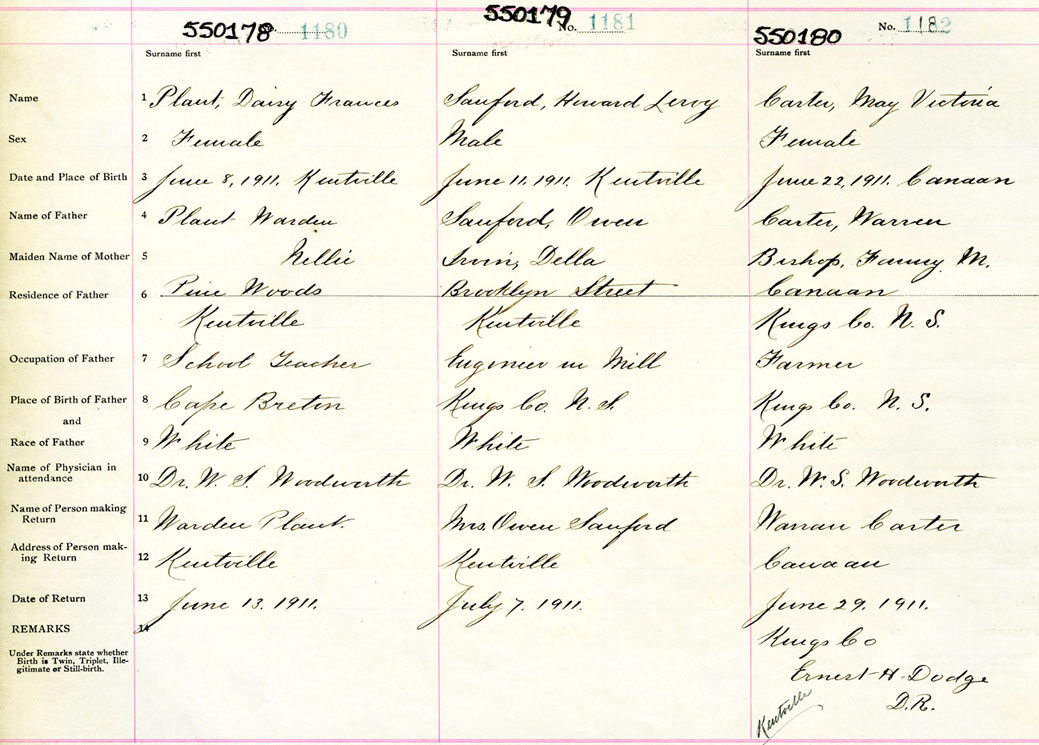 550178 1180 550179 No. 1181 550180 No. 1182
Surname first Surname first Surname first
Name 1 Plant, Daisy Frances Sanford, Howard Leroy Carter, May Victoria
Sex 2 Female Male Female
Date and Place of Birth 3 June 8, 1911. Kentville June 11. 1911. Kentville June 22, 1911. Canaan
Name of Father 4 Plant Warden Sanford, Owen Carter, Warren
Maiden Name of Mother 5 Nellie Irvin, Della Bishop, Fanny M.
Residence of Father 6 Pine Woods Brooklyn Street Canaan
Kentville Kentville Kings Co. N. S.
Occupation of Father 7 School Teacher Engineer in Mill Farmer
Place of Birth of Father 8 Cape Breton Kings Co. N. S. Kings Co. N. S.
and
Race of Father 9 White White White
Name of Physician in
attendance 10 Dr. W. S. Woodworth Dr. W. S. Woodworth Dr. W. S. Woodworth
Name of Person making
Return 11 Warden Plant. Mrs. Owen Sanford Warran Carter
Address of Person mak-
ing Return 12 Kentville Kentville Canaan
Date of Return 13 June 13. 1911. July 7. 1911. June 29. 1911.
REMARKS 14 Kings Co
Under Remarks state whether
Birth is Twin, Triplet, Ille-
gitimate or Still-birth.
Ernest H. Dodge
D.R.
Kentville